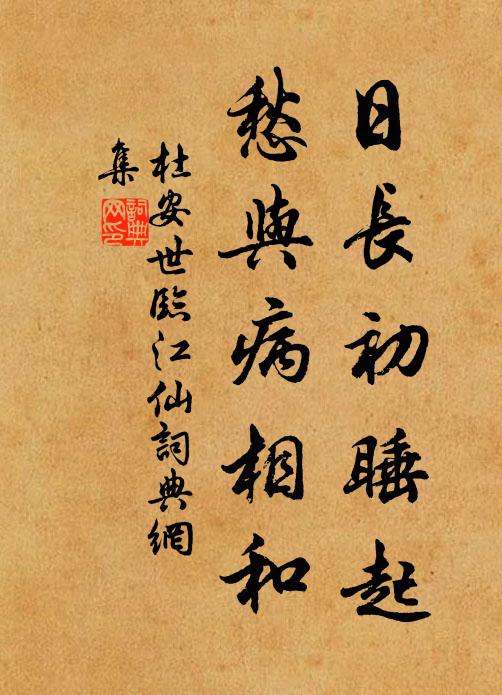 日長初睡起
愁與病相和
杜安世臨江仙詞典網
集
詞典
网印